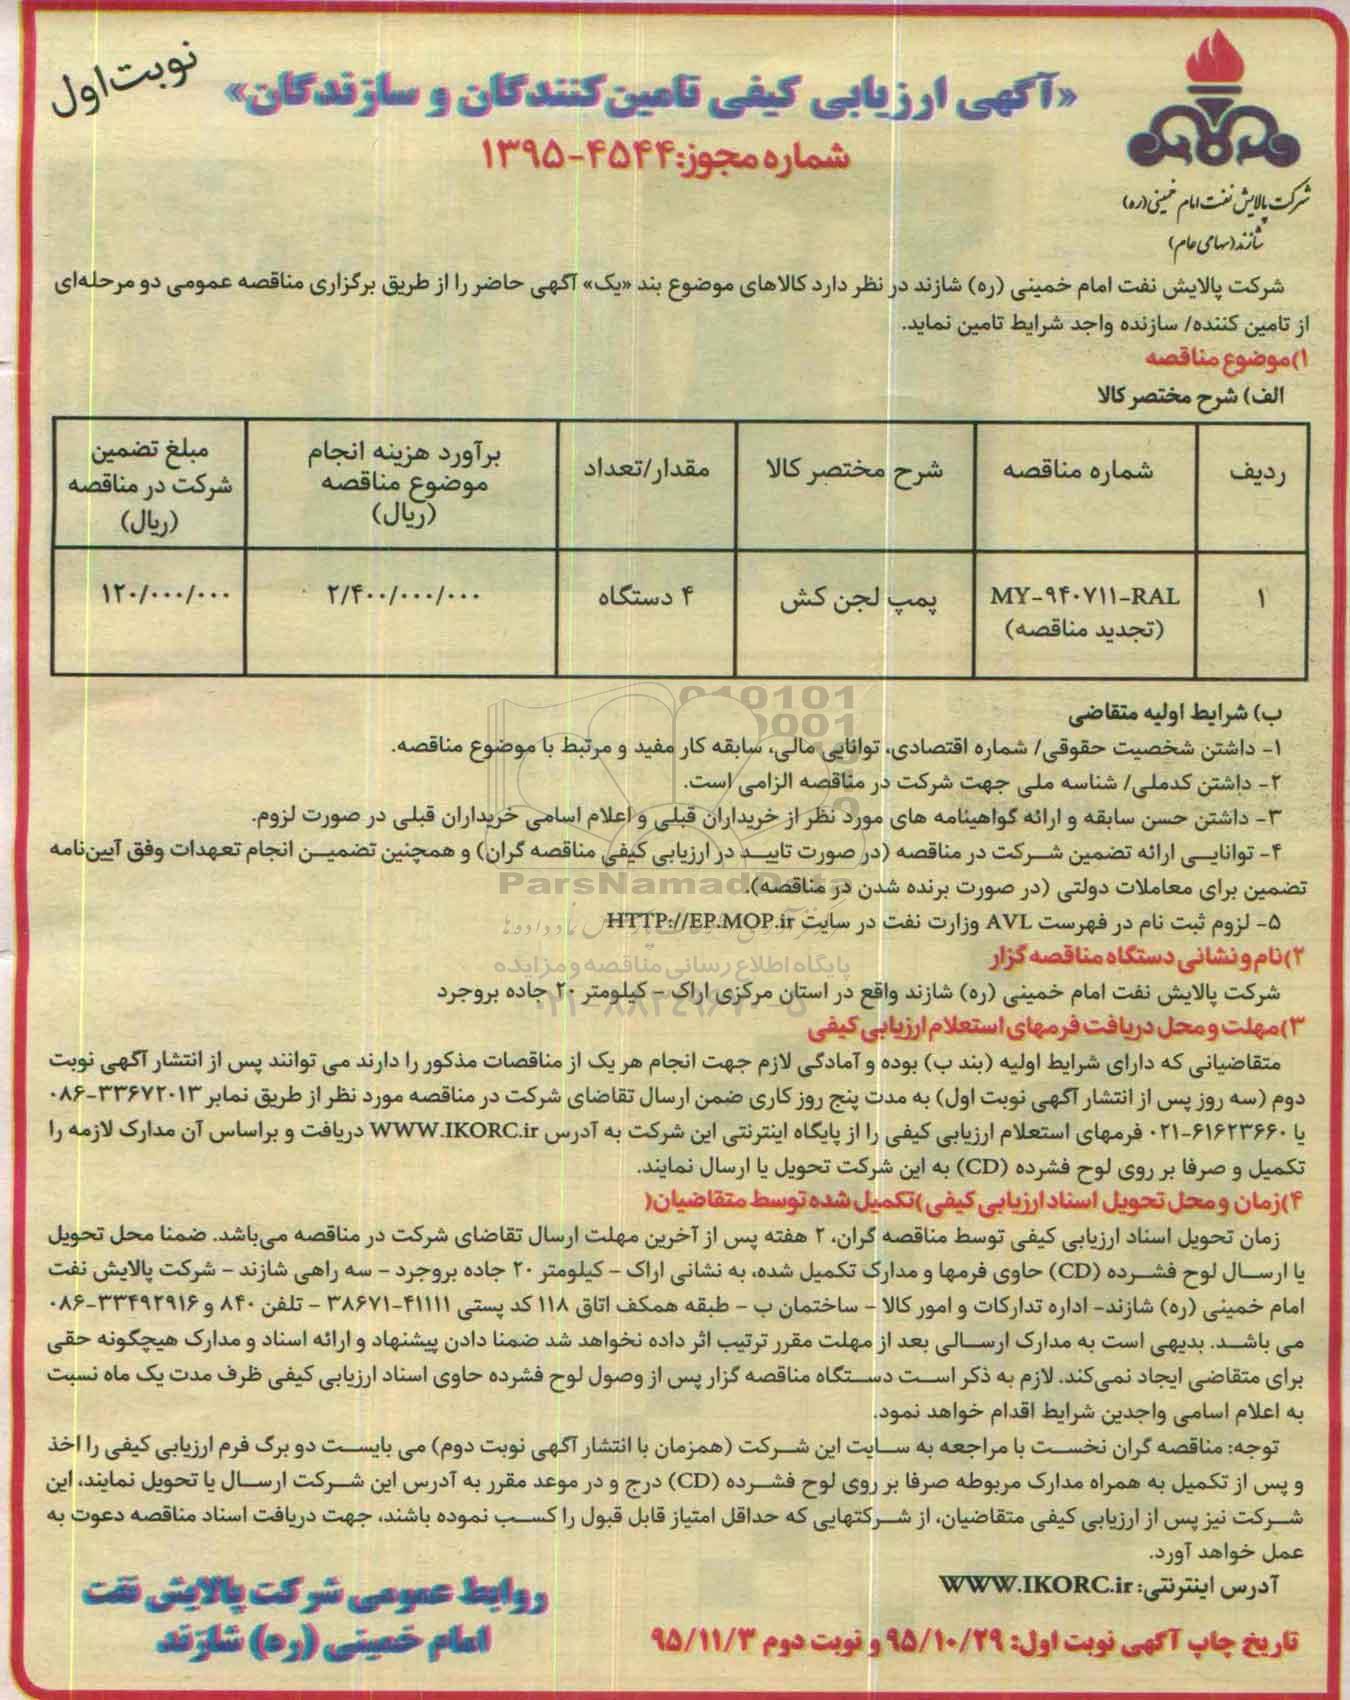 نوبت اول
«آگهی ارزیابی کیفی تامین‌کنندگان و سازندگان»
شماره مجوز: ۴۵۴۴-۱۳۹۵
شرکت پالایش نفت امام خمینی (ره)
شازند (سهامی عام)
شرکت پالایش نفت امام خمینی (ره) شازند در نظر دارد کالاهای موضوع بند «یک» آگهی حاضر را از طریق برگزاری مناقصه عمومی دو مرحله‌ای
از تامین کننده/ سازنده واجد شرایط تامین نماید.
۱)موضوع مناقصه
الف) شرح مختصر کالا
ردیف | شماره مناقصه | شرح مختصر کالا | مقدار/تعداد | برآورد هزینه انجام موضوع مناقصه (ریال) | مبلغ تضمین شرکت در مناقصه (ریال)
۱ | MY-۹۴۰۷۱۱-RAL (تجدید مناقصه) | پمپ لجن کش | ۴ دستگاه | ۲/۴۰۰/۰۰۰/۰۰۰ | ۱۲۰/۰۰۰/۰۰۰
ب) شرایط اولیه متقاضی
۱- داشتن شخصیت حقوقی/ شماره اقتصادی، توانایی مالی، سابقه کار مفید و مرتبط با موضوع مناقصه.
۲- داشتن کدملی/ شناسه ملی جهت شرکت در مناقصه الزامی است.
۳- داشتن حسن سابقه و ارائه گواهینامه های مورد نظر از خریداران قبلی و اعلام اسامی خریداران قبلی در صورت لزوم.
۴- توانایی ارائه تضمین شرکت در مناقصه (در صورت تایید در ارزیابی کیفی مناقصه گران) و همچنین تضمین انجام تعهدات وفق آیین‌نامه
تضمین برای معاملات دولتی (در صورت برنده شدن در مناقصه).
۵- لزوم ثبت نام در فهرست AVL وزارت نفت در سایت HTTP://EP.MOP.ir
۲)نام و نشانی دستگاه مناقصه گزار
شرکت پالایش نفت امام خمینی (ره) شازند واقع در استان مرکزی اراک - کیلومتر ۲۰ جاده بروجرد
۳)مهلت و محل دریافت فرمهای استعلام ارزیابی کیفی
متقاضیانی که دارای شرایط اولیه (بند ب) بوده و آمادگی لازم جهت انجام هر یک از مناقصات مذکور را دارند می توانند پس از انتشار آگهی نوبت
دوم (سه روز پس از انتشار آگهی نوبت اول) به مدت پنج روز کاری ضمن ارسال تقاضای شرکت در مناقصه مورد نظر از طریق نمابر ۳۳۶۷۲۰۱۳-۰۸۶
یا ۶۱۶۲۳۶۶۰-۰۲۱ فرمهای استعلام ارزیابی کیفی را از پایگاه اینترنتی این شرکت به آدرس WWW.IKORC.ir دریافت و براساس آن مدارک لازمه را
تکمیل و صرفا بر روی لوح فشرده (CD) به این شرکت تحویل یا ارسال نمایند.
۴)زمان و محل تحویل اسناد ارزیابی کیفی )تکمیل شده توسط متقاضیان(
زمان تحویل اسناد ارزیابی کیفی توسط مناقصه گران، ۲ هفته پس از آخرین مهلت ارسال تقاضای شرکت در مناقصه می‌باشد. ضمنا محل تحویل
یا ارسال لوح فشرده (CD) حاوی فرمها و مدارک تکمیل شده، به نشانی اراک - کیلومتر ۲۰ جاده بروجرد - سه راهی شازند - شرکت پالایش نفت
امام خمینی (ره) شازند- اداره تدارکات و امور کالا - ساختمان ب - طبقه همکف اتاق ۱۱۸ کد پستی ۴۱۱۱۱-۳۸۶۷۱ - تلفن ۸۴۰ و ۳۳۴۹۲۹۱۶-۰۸۶
می باشد. بدیهی است به مدارک ارسالی بعد از مهلت مقرر ترتیب اثر داده نخواهد شد ضمنا دادن پیشنهاد و ارائه اسناد و مدارک هیچگونه حقی
برای متقاضی ایجاد نمی‌کند. لازم به ذکر است دستگاه مناقصه گزار پس از وصول لوح فشرده حاوی اسناد ارزیابی کیفی ظرف مدت یک ماه نسبت
به اعلام اسامی واجدین شرایط اقدام خواهد نمود.
توجه: مناقصه گران نخست با مراجعه به سایت این شرکت (همزمان با انتشار آگهی نوبت دوم) می بایست دو برگ فرم ارزیابی کیفی را اخذ
و پس از تکمیل به همراه مدارک مربوطه صرفا بر روی لوح فشرده (CD) درج و در موعد مقرر به آدرس این شرکت ارسال یا تحویل نمایند، این
شرکت نیز پس از ارزیابی کیفی متقاضیان، از شرکتهایی که حداقل امتیاز قابل قبول را کسب نموده باشند، جهت دریافت اسناد مناقصه دعوت به
عمل خواهد آورد.
آدرس اینترنتی: WWW.IKORC.ir
تاریخ چاپ آگهی نوبت اول: ۹۵/۱۰/۲۹ و نوبت دوم ۹۵/۱۱/۳
روابط عمومی شرکت پالایش نفت
امام خمینی (ره) شازند
ParsNamadData
پایگاه اطلاع رسانی مناقصه و مزایده